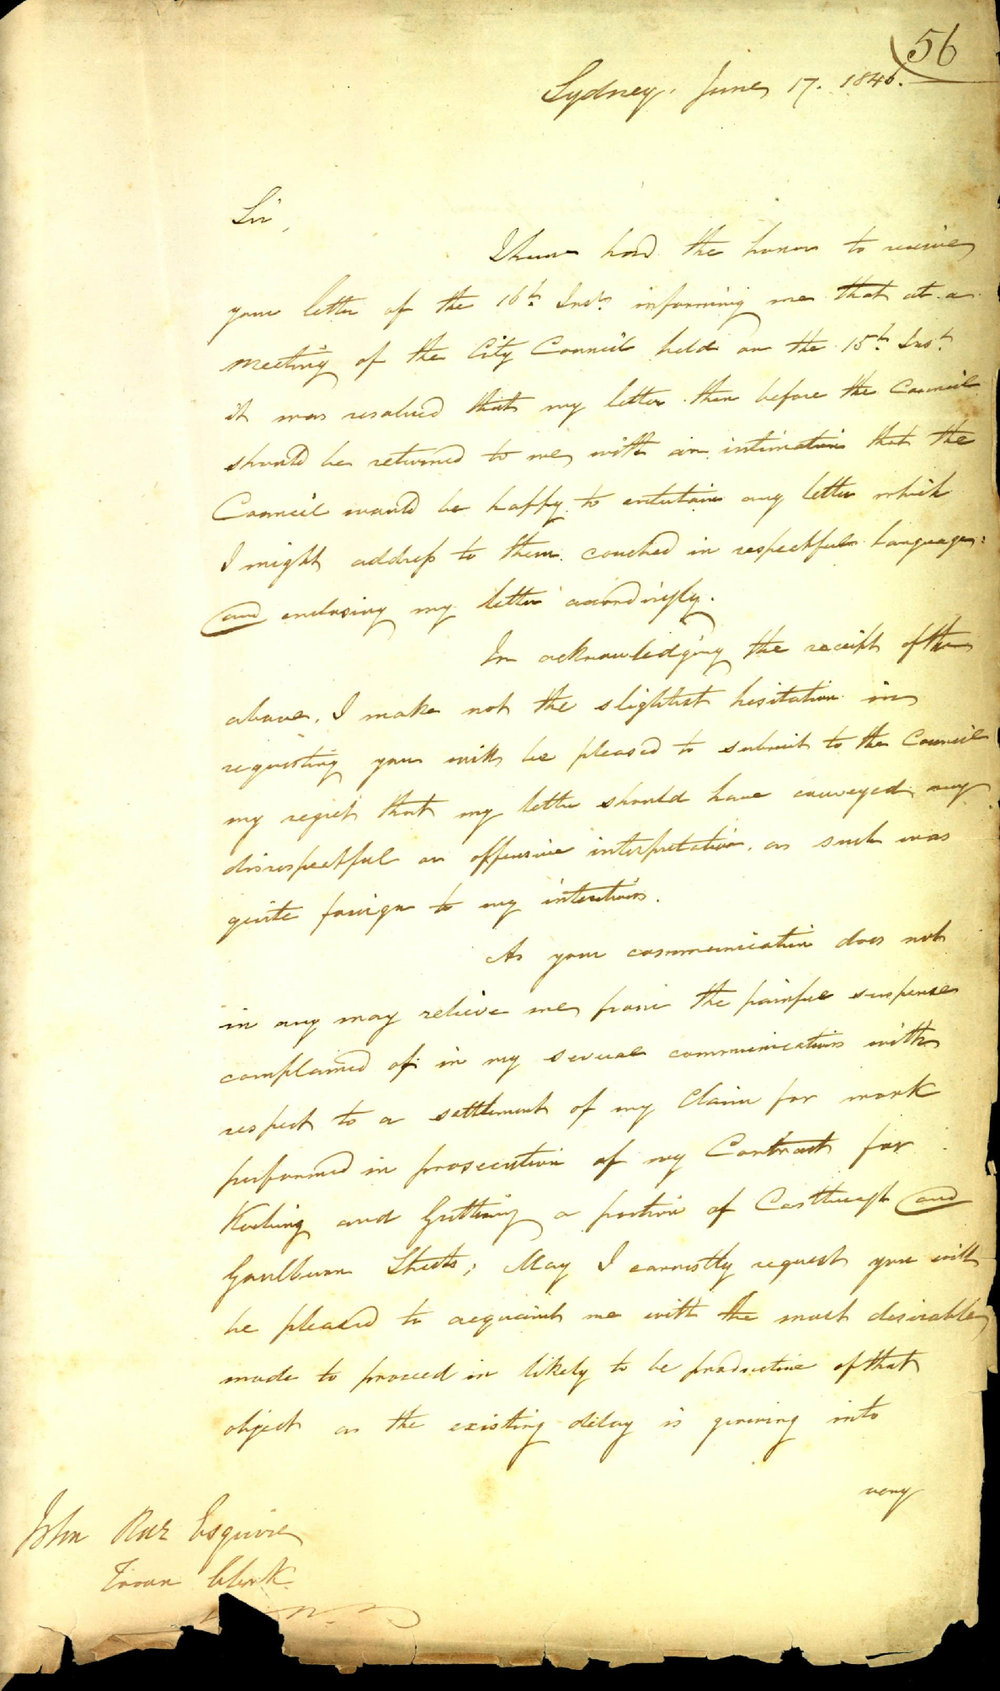 56
Sydney, June 17. 1846.
Sir,
I have had the honor to receive
your letter of the 16th Inst. informing me that at a
meeting of the City Council held on the 15th Inst.
it was resolved that my letter then before the Council
should be returned to me with an intimation that the
Council would be happy to entertain any letter which
I might address to them couched in respectful language:
and enclosing my letter accordingly.
In acknowledging the receipt of the
above, I make not the slightest hesitation in
requesting you will be pleased to submit to the Council
my regret that my letter should have conveyed any
disrespectful or offensive interpretation, as such was
quite foreign to my intentions.
As your communication does not
in any way relieve me from the painful suspense
complained of in my several communications with
respect to a settlement of my Claim for work
performed in prosecution of my Contract for
Kerbing and Guttering a portion of Castlereagh and
Goulburn Streets; May I earnestly request you will
be pleased to acquaint me with the most desirable
mode to proceed in likely to be productive of that
object as the existing delay is growing into
very
John Rae Esquire
Town Clerk